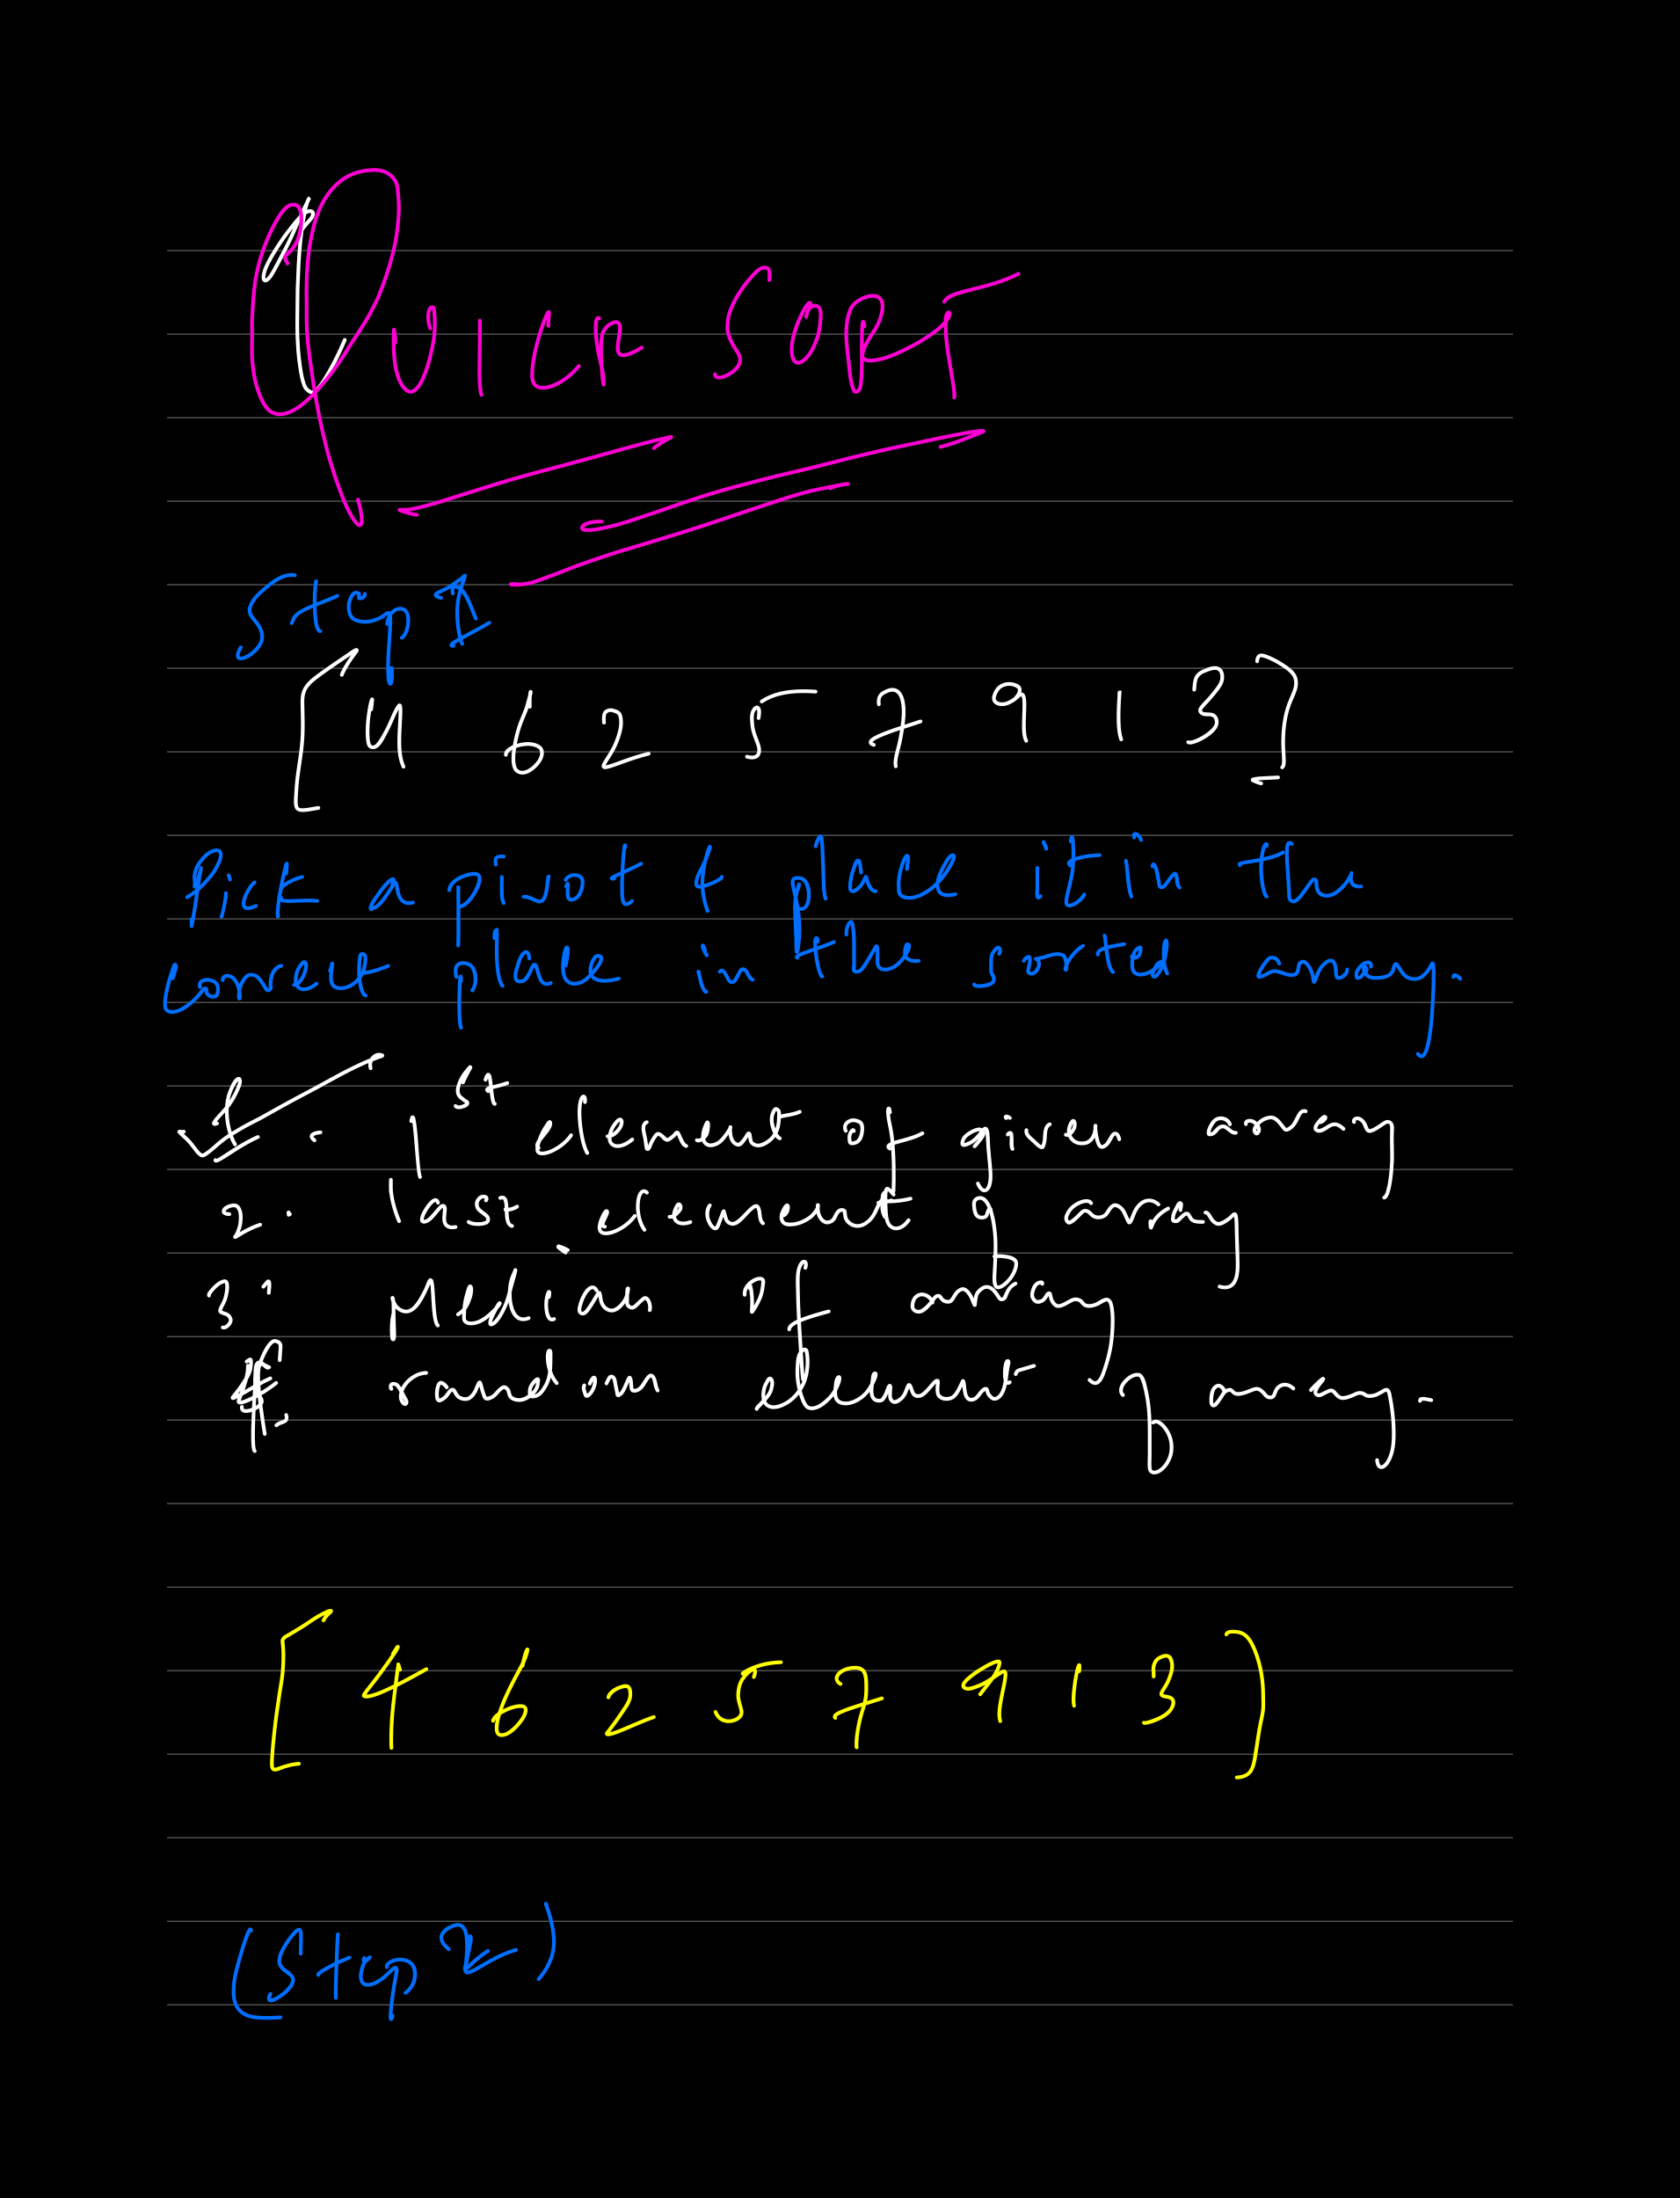 QUICK SORT
Step 1
[4 6 2 5 7 9 1 3]
Pick a pivot & place it in the
correct place in the sorted array.
1. 1st element of given array
2. last element of array
3. Median of array
4. random element of array.
[4 6 2 5 7 9 1 3]
(Step 2)